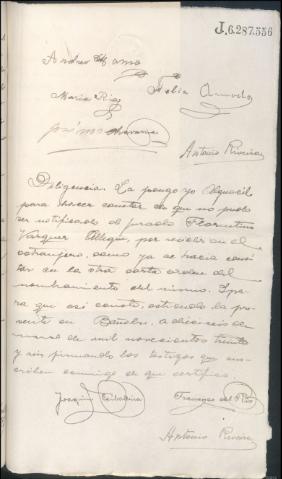 J.6.287.556
Andres Ramo
Felix
Maria Rios
José Mª
Antonio Riveira
Diligencia. La pongo yo Alguacil
para hacer constar de que no pudo
ser notificado el jurado Florentino
Vazquez Allegue, por residir en el
extranjero, como ya se hacia cons-
tar en la otra carta orden del
nombramiento del mismo. I pa-
ra que asi conste, extiendo la pre-
sente en a dieciseis de
marzo de mil novecientos treinta
y seis firmando los testigos que sus-
criben conmigo de que certifico.
Joaquin
Francisco del Rio
Antonio Riveira